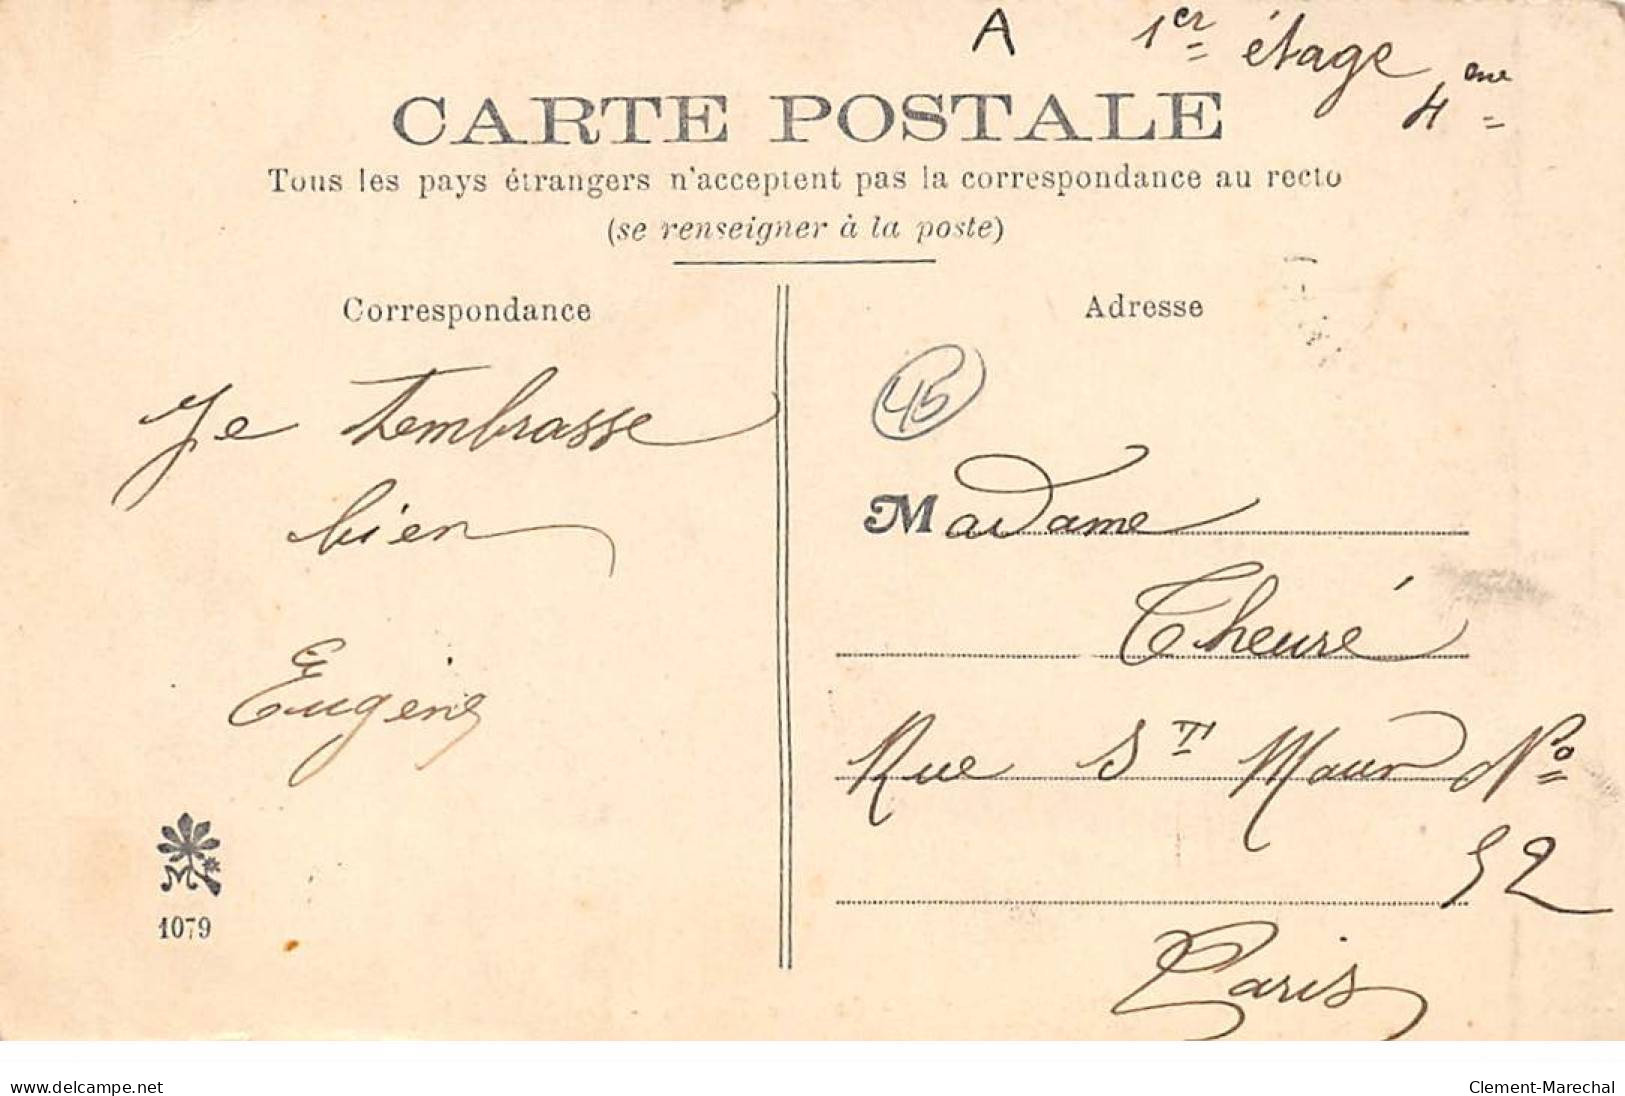 A 1er étage
4eme
CARTE POSTALE
Tous les pays étrangers n'acceptent pas la correspondance au recto
(se renseigner à la poste)
Correspondance
Je t'embrasse
bien
Eugène
M
1079
Adresse
45
Madame
Theuré
Rue St Maur No
52
Paris
www.delcampe.net
Clement-Marechal